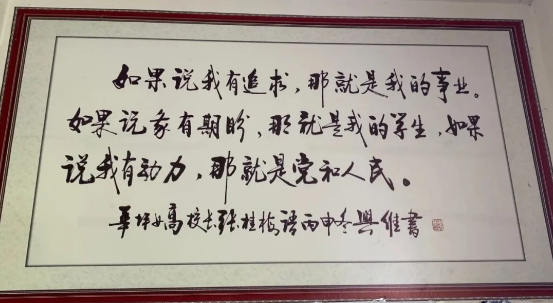 如果说我有追求，那就是我的事业。
如果说我有期盼，那就是我的学生，如果
说我有动力，那就是党和人民。
华坪女高校长张桂梅语丙申冬兴维書